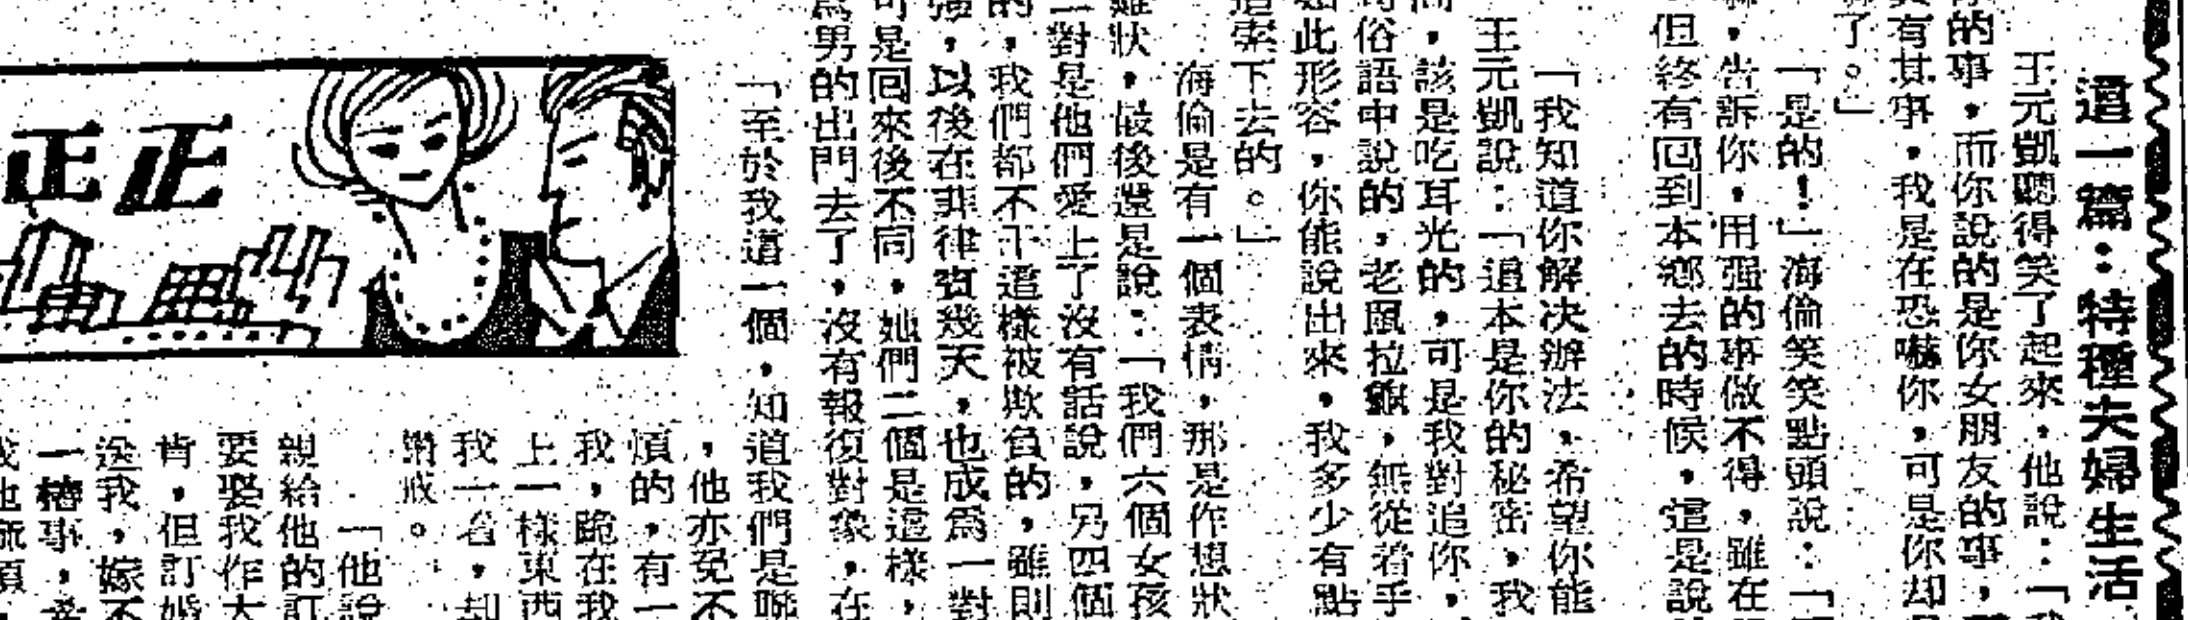 這一篇：特種夫婦生活
王元凱聽得笑了起來，他說：「我
的事，而你說的是你女朋友的事，
有其事，我是在恐嚇你，可是你却
了。」
「是的！」海倫笑笑點頭說：「
，告訴你，用强的事做不得，雖在
但終有回到本鄉去的時候，這是說
「我知道你解决辦法，希望你能
王元凱說：「這本是你的秘密，我
，該是吃耳光的，可是我對追你，
俗語中說的，老鼠拉龜，無從着手
此形容，你能說出來，我多少有點
下去的。」
海倫是有一個表情，那是作想狀
狀，最後還是說：「我們六個女孩
一對是他們愛上了沒有話說，另四個
的，我們都不干這樣被欺負的，雖則
强，以後在菲律賓幾天，也成爲一對
可是回來後不同，她們二個是這樣，
爲男的出門去了，沒有報復對象，在
「至於我這一個，知道我們是聯
，他亦免不
煩的，有一
我，跪在我
上一樣東西
我一看，却
鑽戒。
「他說
親給他的訂
要娶我作大
肯，但訂婚
送我，嫁不
一樁事，
正正